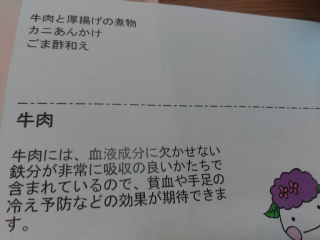 牛肉と厚揚げの煮物
カニあんかけ
ごま酢和え
牛肉
牛肉には、血液成分に欠かせない
鉄分が非常に吸収の良いかたちで
含まれているので、貧血や手足の
冷え予防などの効果が期待できま
す。